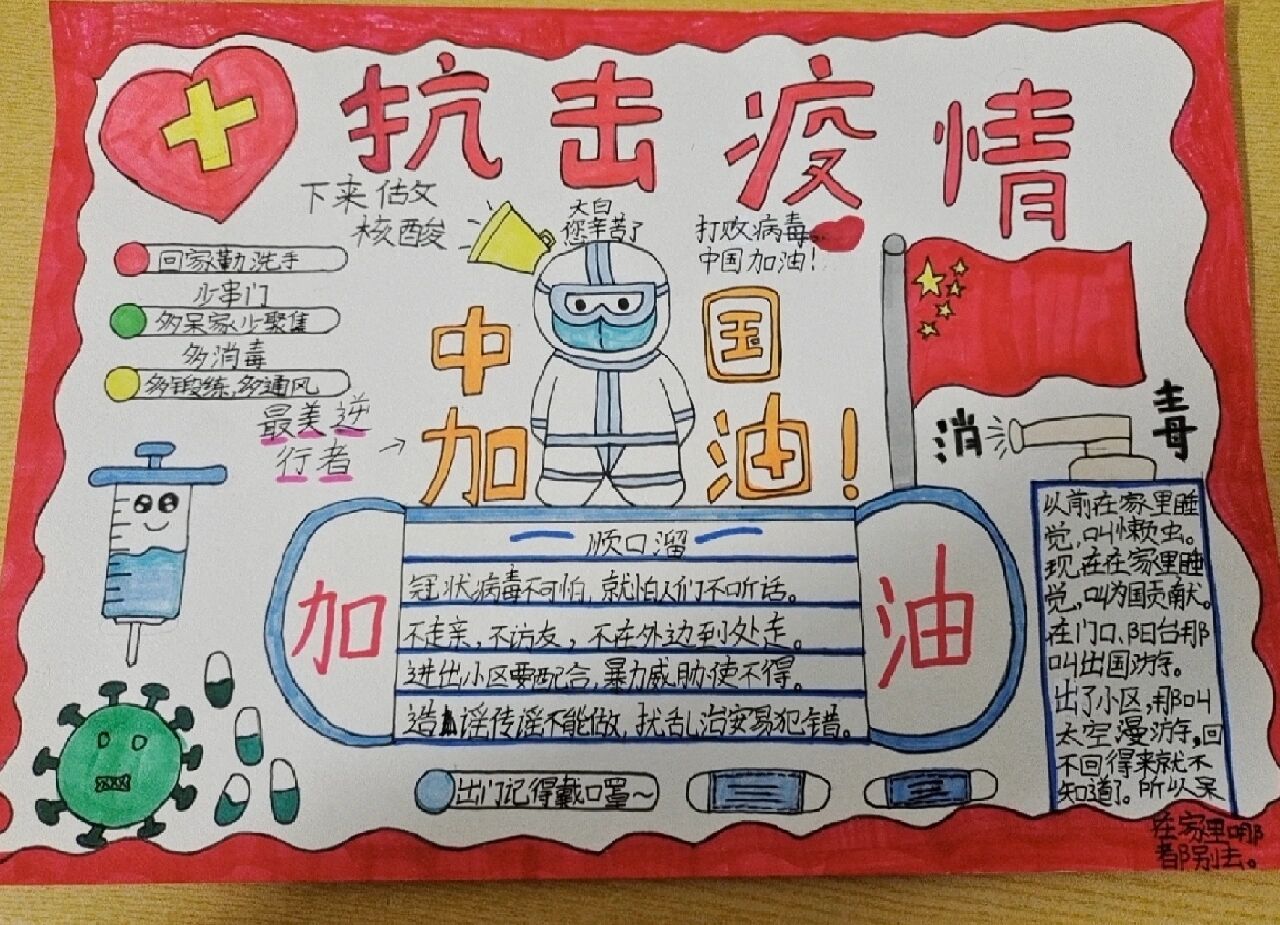 抗击疫情
下来估文
核酸
大白
您辛苦了
打败病毒
中国加油！
回家勤洗手
少串门
多呆家少聚集
多消毒
多锻练，多通风
最美逆
行者
中国
加油！
消毒
顺口溜
冠状病毒不可怕，就怕人们不听话。
不走亲，不访友，不在外边到处走。
进出小区要配合，暴力威胁使不得。
造谣传谣不能做，扰乱治安易犯错。
加油
出门记得戴口罩～
以前在家里睡
觉，叫懒虫。
现在在家里睡
觉，叫为国贡献。
在门口、阳台那
叫出国游。
出了小区，那叫
太空漫游，回
不回得来就不
知道了。所以呆
在家里哪
都别去。